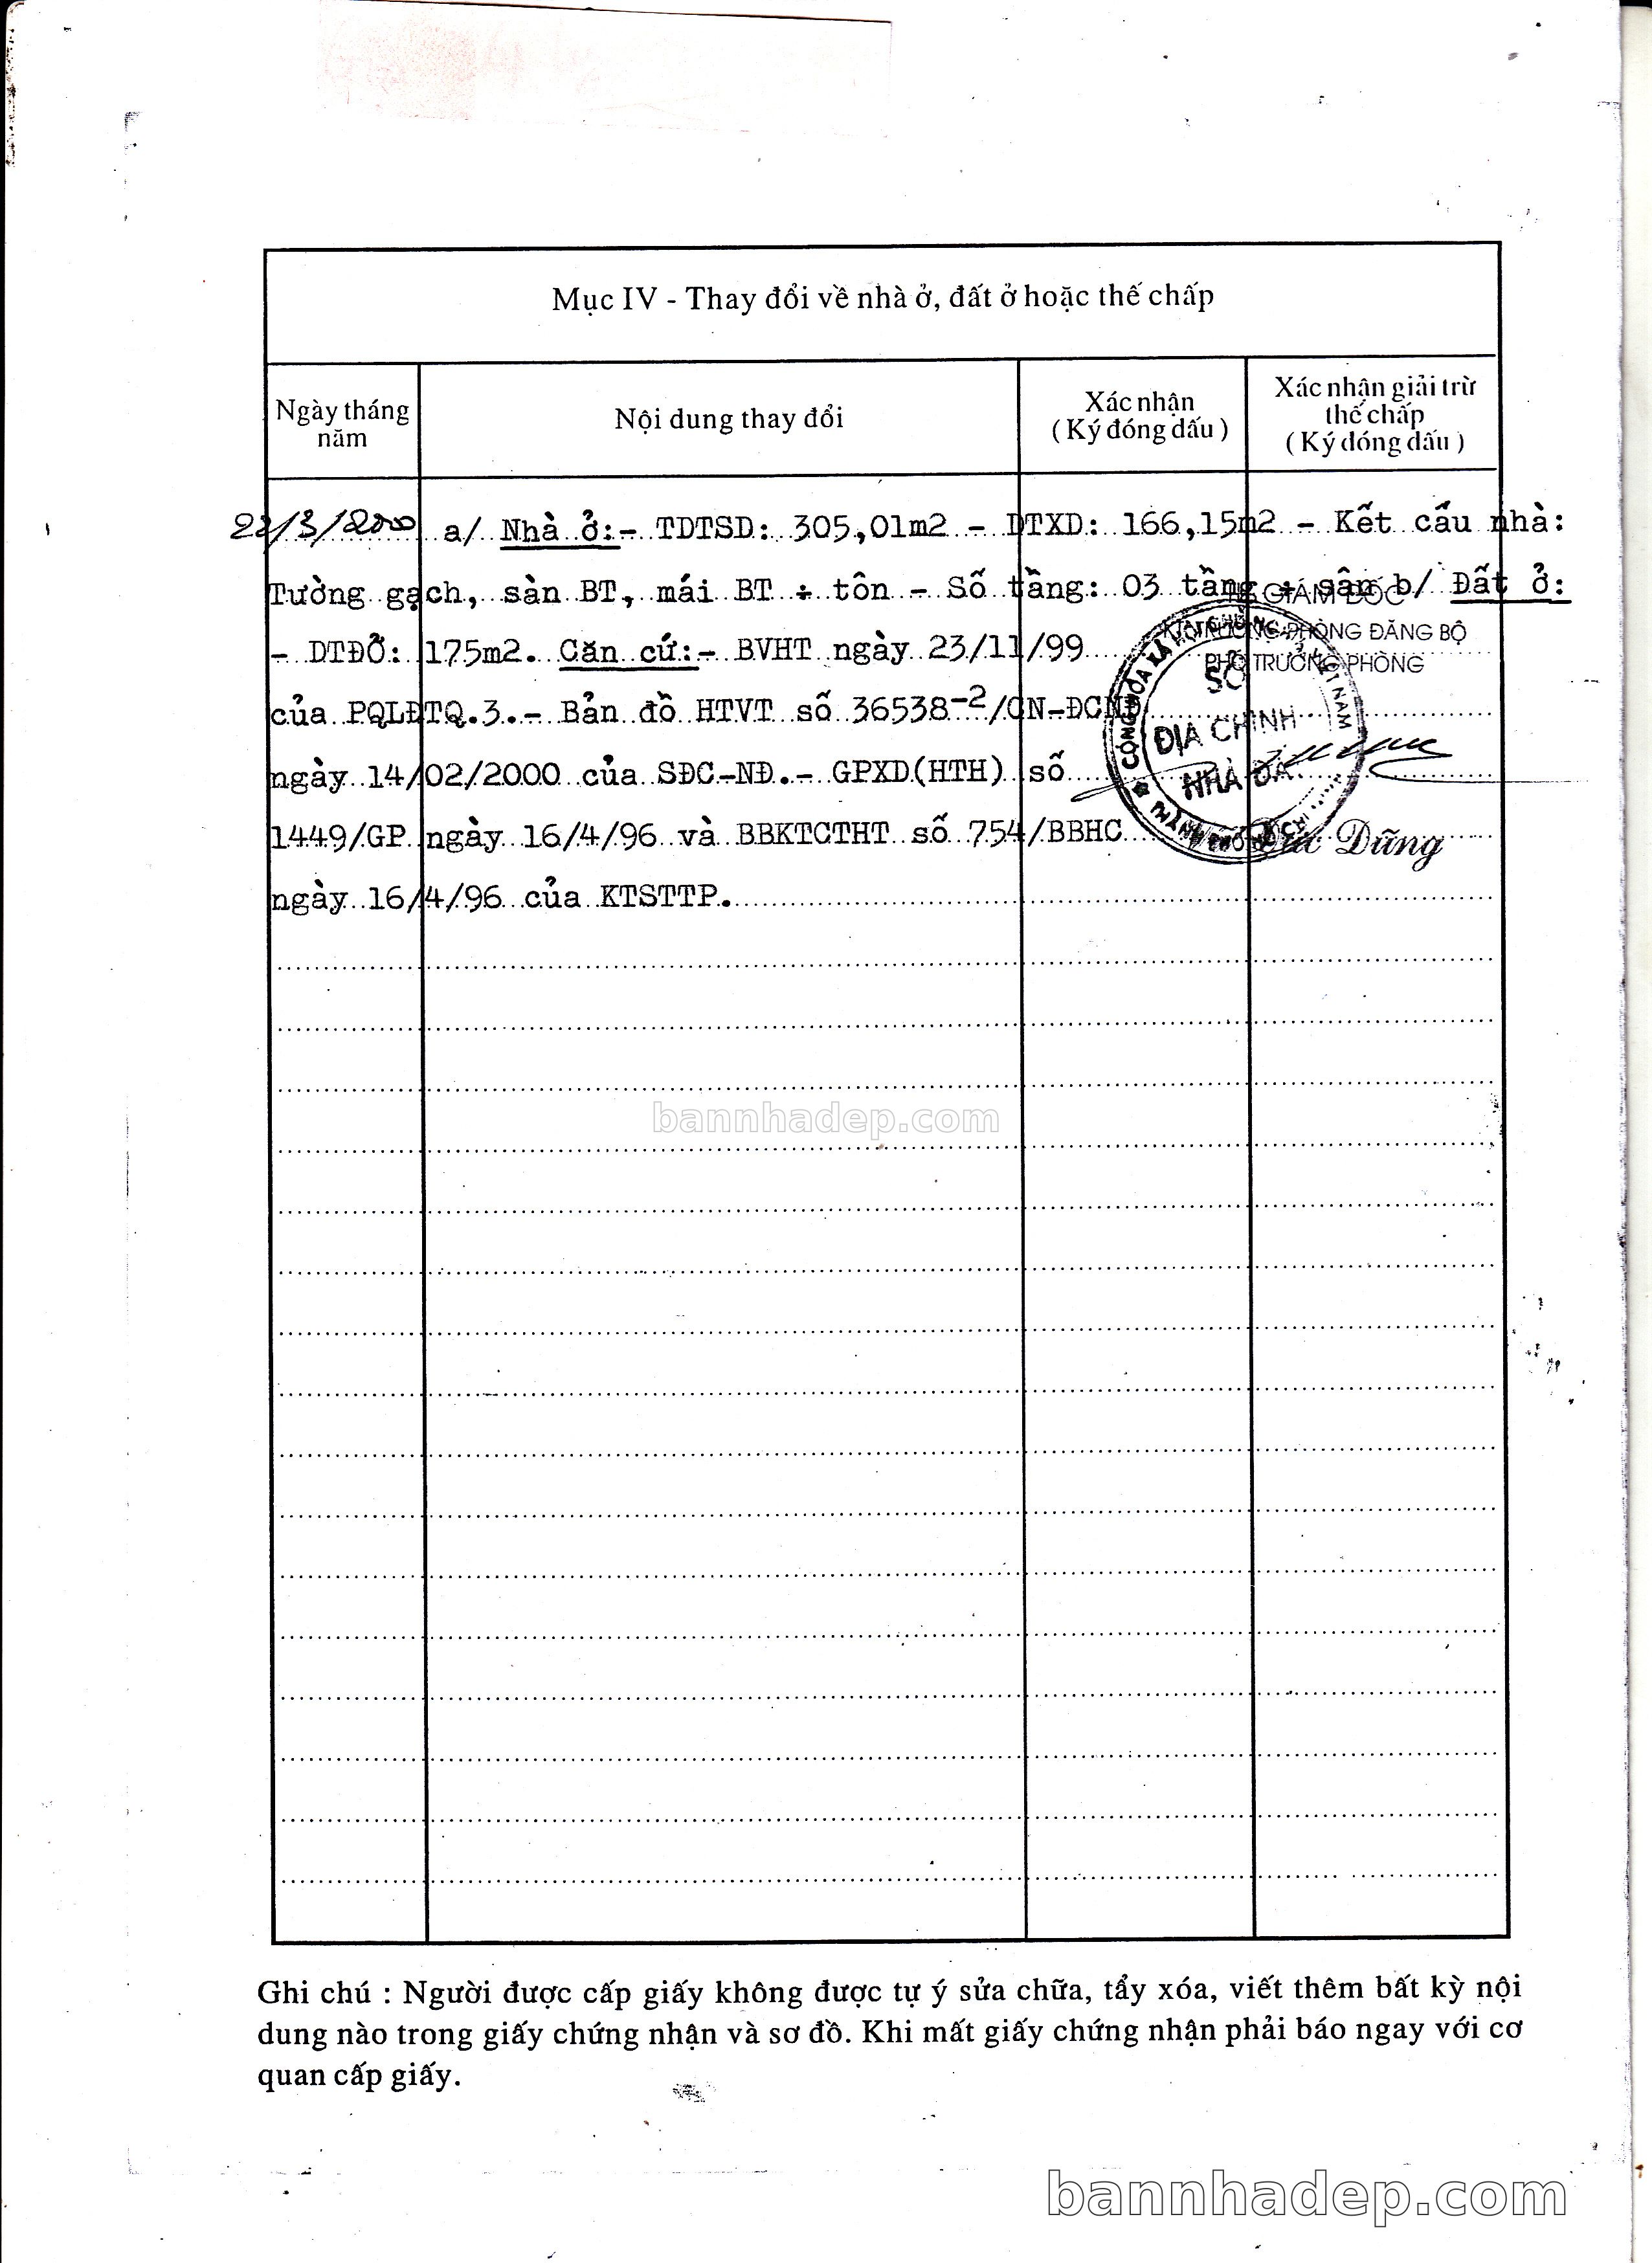 Mục IV - Thay đổi về nhà ở, đất ở hoặc thế chấp
Ngày tháng
năm
Nội dung thay đổi
Xác nhận
( Ký đóng dấu )
Xác nhận giải trừ
thế chấp
( Ký đóng dấu )
22/3/2000 a/ Nhà ở:- TDTSD: 305,01m2 - DTXD: 166,15m2 - Kết cấu nhà:
Tường gạch, sàn BT, mái BT + tôn - Số tầng: 03 tầng + sân b/ Đất ở:
- DTĐỞ: 175m2. Căn cứ:- BVHT ngày 23/11/99
của PQLĐTQ.3.- Bản đồ HTVT số 36538-2/CN-ĐCNĐ
ngày 14/02/2000 của SĐC-NĐ.- GPXD(HTH) số
1449/GP ngày 16/4/96 và BBKTCTHT số 754/BBHC
ngày 16/4/96 của KTSTTP.
GIÁM ĐỐC
TRƯỞNG PHÒNG ĐĂNG BỘ
PHÓ TRƯỞNG PHÒNG
SỞ
ĐỊA CHÍNH
NHÀ ĐẤT
Dũng
bannhadep.com
Ghi chú : Người được cấp giấy không được tự ý sửa chữa, tẩy xóa, viết thêm bất kỳ nội
dung nào trong giấy chứng nhận và sơ đồ. Khi mất giấy chứng nhận phải báo ngay với cơ
quan cấp giấy.
bannhadep.com